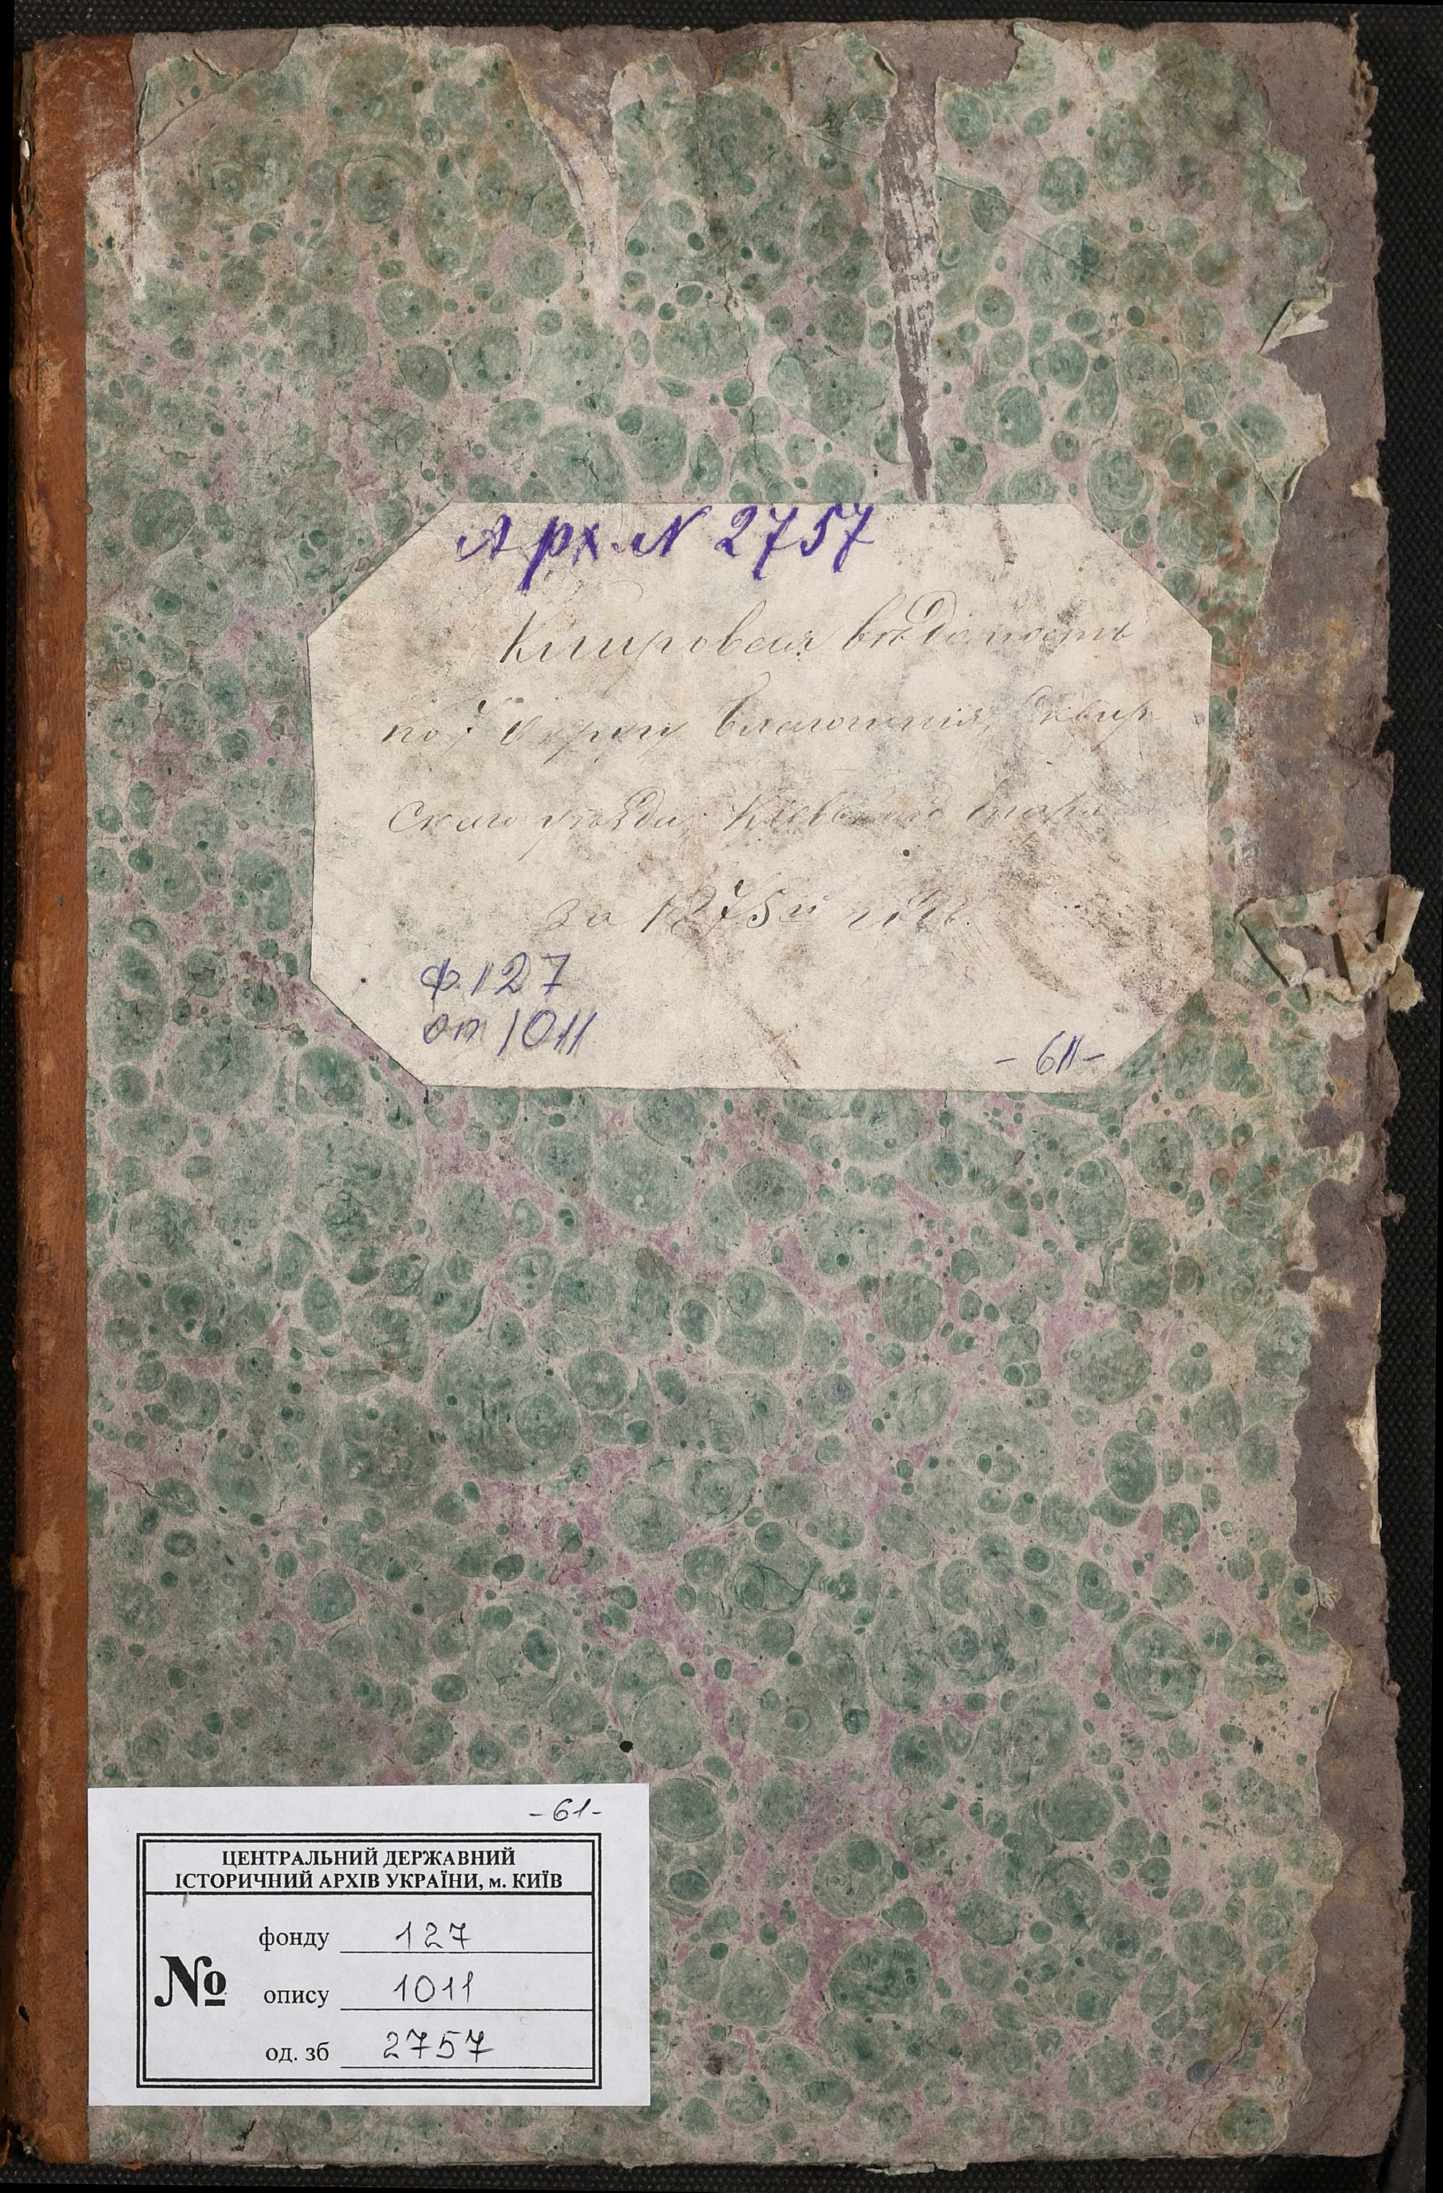 Арх. N 2757
Клировая вѣдомость
по 7 Округу благочинія, Сквир
скаго уѣзда, Кіевской
за 1875й годъ.
ф. 127
оп 1011
- 61 -
- 61 -
ЦЕНТРАЛЬНИЙ ДЕРЖАВНИЙ
ІСТОРИЧНИЙ АРХІВ УКРАЇНИ, м. КИЇВ
№
фонду 127
опису 1011
од. зб 2757